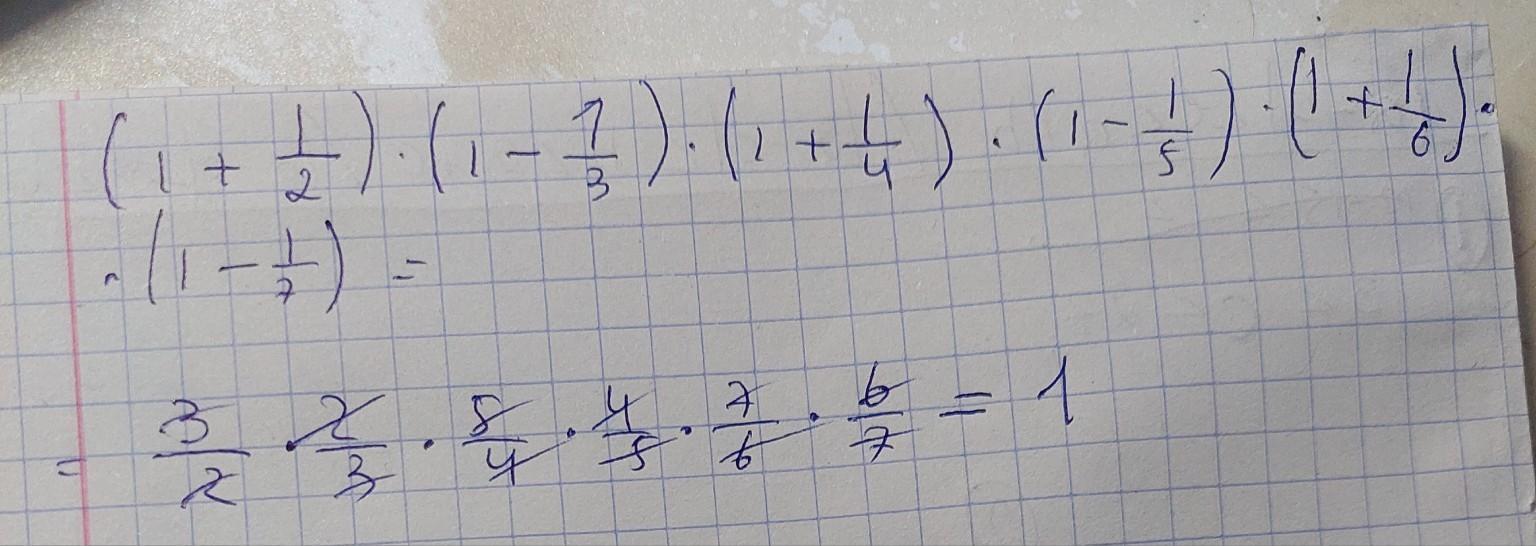 (1 + 1/2) · (1 - 1/3) · (1 + 1/4) · (1 - 1/5) · (1 + 1/6) ·
· (1 - 1/7) =
= 3/2 · 2/3 · 5/4 · 4/5 · 7/6 · 6/7 = 1